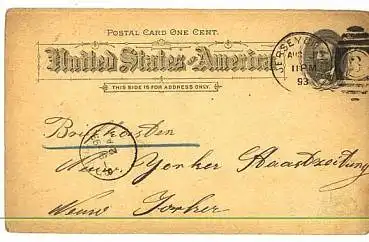 POSTAL CARD ONE CENT.
United States of America
THIS SIDE IS FOR ADDRESS ONLY.
JERSEY CITY
11 PM
93
Briefkasten
New Yorker Staatszeitung
New Yorker